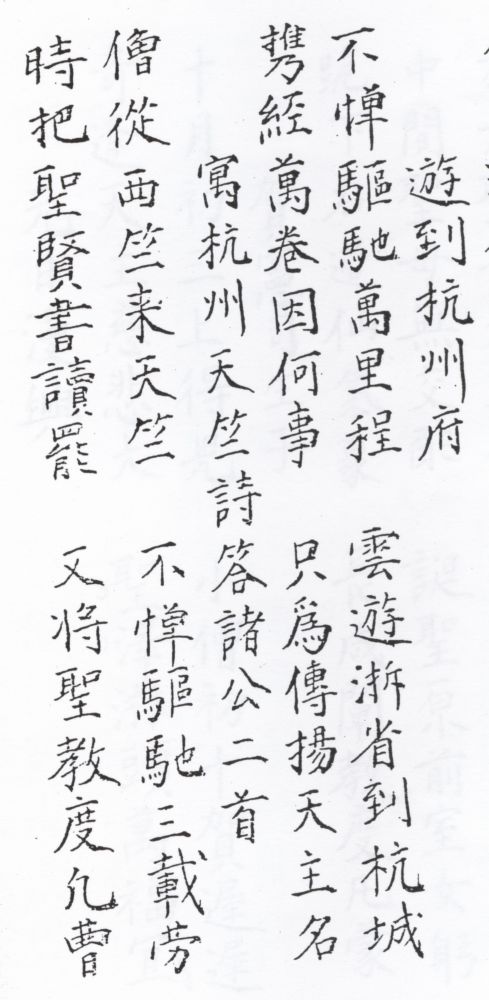 遊到杭州府
不憚驅馳萬里程　雲遊浙省到杭城
携經萬卷因何事　只爲傳揚天主名
寓杭州天竺詩　答諸公二首
僧從西竺来天竺　不憚驅馳三載劳
時把聖賢書讀罷　又将聖教度凡曹